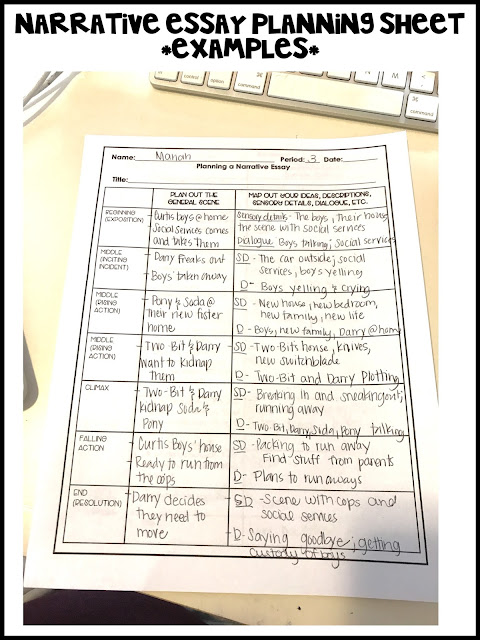 NARRATIVE ESSAY PLANNING SHEET
*EXAMPLES*
control
option
command
command
option
N
M
Name: Mariah Period: 3 Date:
Planning a Narrative Essay
Title:
PLAN OUT THE
GENERAL SCENE
MAP OUT YOUR IDEAS, DESCRIPTIONS,
SENSORY DETAILS, DIALOGUE, ETC.
BEGINNING
(EXPOSITION)
- Curtis boys @ home
- Social Services comes
and takes them
Sensory details - The boys, Their house,
the scene with social services
Dialogue Boys talking; social services
MIDDLE
(INCITING
INCIDENT)
- Darry freaks out
- Boys' taken away
SD - The car outside; social
services, boys yelling
D - Boys yelling & crying
MIDDLE
(RISING
ACTION)
- Pony & Soda @
their new foster
home
SD - New house, new bedroom,
new family, new life
D - Boys, new family, Darry @ home
MIDDLE
(RISING
ACTION)
- Two-Bit & Darry
want to kidnap
them
SD - Two-Bits house, knives,
new switchblade
D - Two-Bit and Darry plotting
CLIMAX
- Two-Bit & Darry
kidnap Soda &
Pony
SD - Breaking in and sneaking out;
running away
D - Two-Bit, Darry, Soda, Pony talking
FALLING
ACTION
- Curtis Boys' house
- Ready to run from
the cops
SD - Packing to run away
Find stuff from parents
D - Plans to run aways
END
(RESOLUTION)
- Darry decides
they need to
move
SD - Scene with cops and
social services
D - Saying goodbye; getting
custody of boys